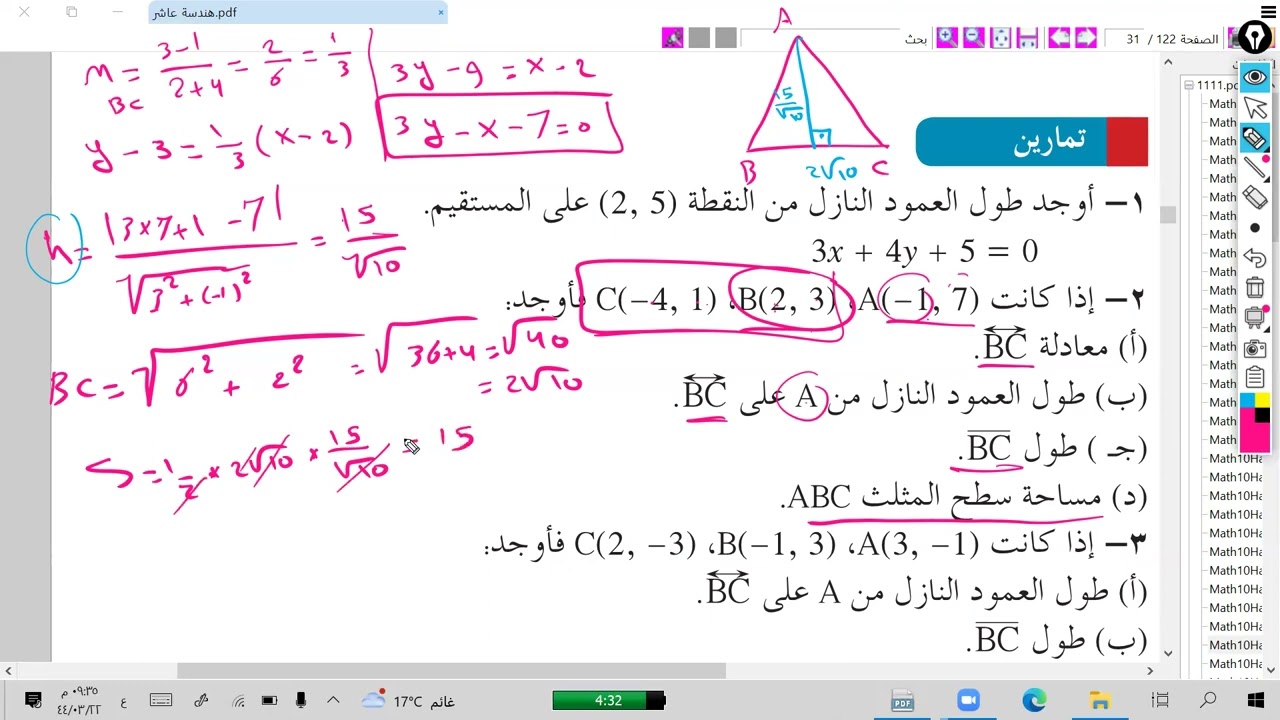 هندسة عاشر.pdf
الصفحة 122 / 31
بحث
1111.pd
تمارين
١– أوجد طول العمود النازل من النقطة (2, 5) على المستقيم.
3x + 4y + 5 = 0
٢– إذا كانت A(−1, 7)، B(2, 3)، C(−4, 1) فأوجد:
(أ) معادلة BC.
(ب) طول العمود النازل من A على BC.
(جـ) طول BC.
(د) مساحة سطح المثلث ABC.
٣– إذا كانت A(3, −1)، B(−1, 3)، C(2, −3) فأوجد:
(أ) طول العمود النازل من A على BC.
(ب) طول BC.
m BC = 3-1 / 2+4 = 2/6 = 1/3
y - 3 = 1/3 (x - 2)
3y - 9 = x - 2
3y - x - 7 = 0
h = |3×7+1 -7| / √3² + (-1)² = 15/√10
BC = √6² + 2² = √36+4 = √40
= 2√10
S = 1/2 × 2√10 × 15/√10 = 15
A
15/√10
B 2√10 C
Math
Math
Math
Math
Math
Math
Math
Math
Math
Math
Math
Math
Math
Math
Math
Math
Math
Math10
Math10Ha
Math10Ha
Math10Ha
Math10Ha
Math10Ha
Math10Ha
Math10Ha
Math10Ha
Math10Ha
Math10Ha
Math10Ha
٠٩:٣٥ م
٤٤/٠٣/٢٢
ع
17°C غائم
4:32
PDF